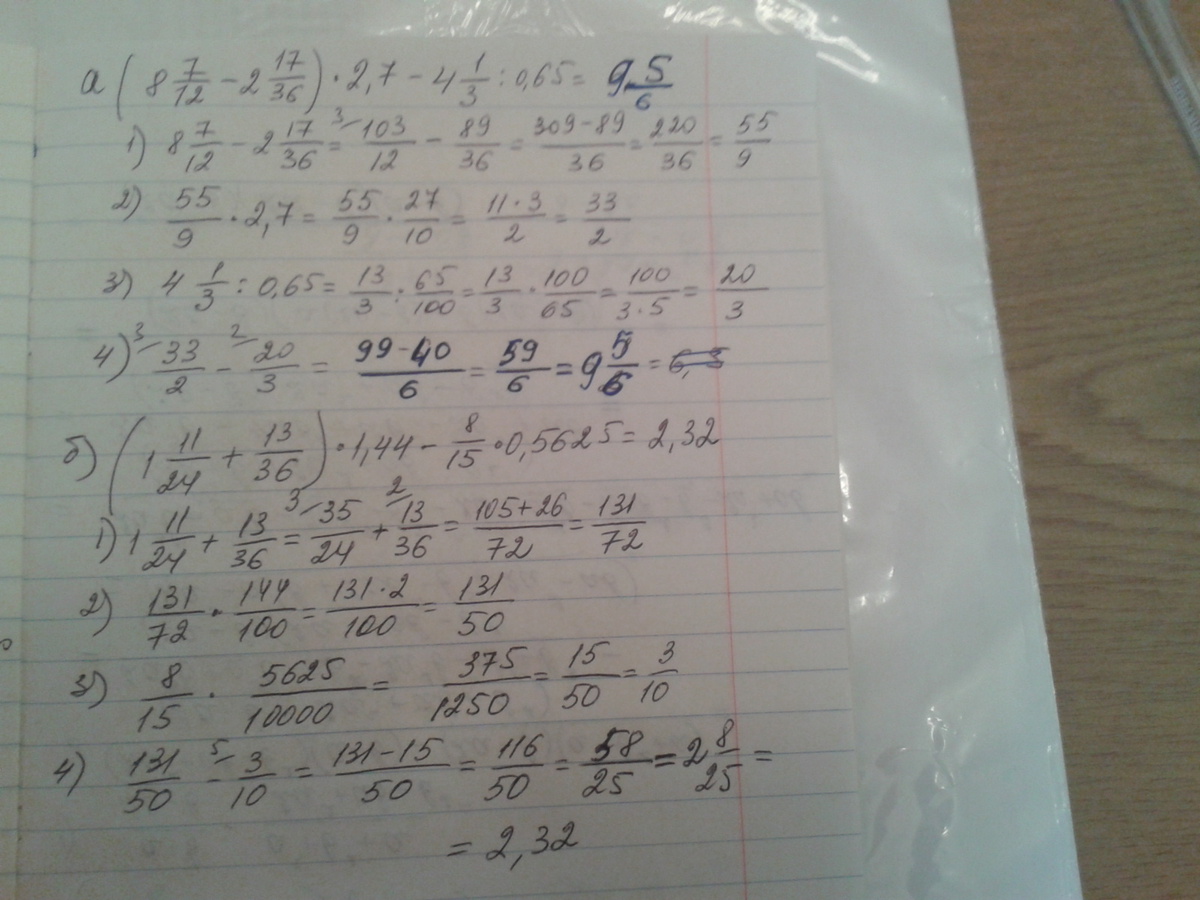 а (8 7/12 − 2 17/36) · 2,7 − 4 1/3 : 0,65 = 9 5/6
1) 8 7/12 − 2 17/36 = ³⁄ 103/12 − 89/36 = 309−89/36 = 220/36 = 55/9
2) 55/9 · 2,7 = 55/9 · 27/10 = 11·3/2 = 33/2
3) 4 1/3 : 0,65 = 13/3 : 65/100 = 13/3 · 100/65 = 100/3·5 = 20/3
4) ³⁄ 33/2 − ²⁄ 20/3 = 99−40/6 = 59/6 = 9 5/6 =
б) (1 11/24 + 13/36) · 1,44 − 8/15 · 0,5625 = 2,32
1) 1 11/24 + 13/36 = ³⁄ 35/24 + ²⁄ 13/36 = 105+26/72 = 131/72
2) 131/72 · 144/100 = 131·2/100 = 131/50
3) 8/15 · 5625/10000 = 375/1250 = 15/50 = 3/10
4) 131/50 − ⁵⁄ 3/10 = 131−15/50 = 116/50 = 58/25 = 2 8/25 =
= 2,32